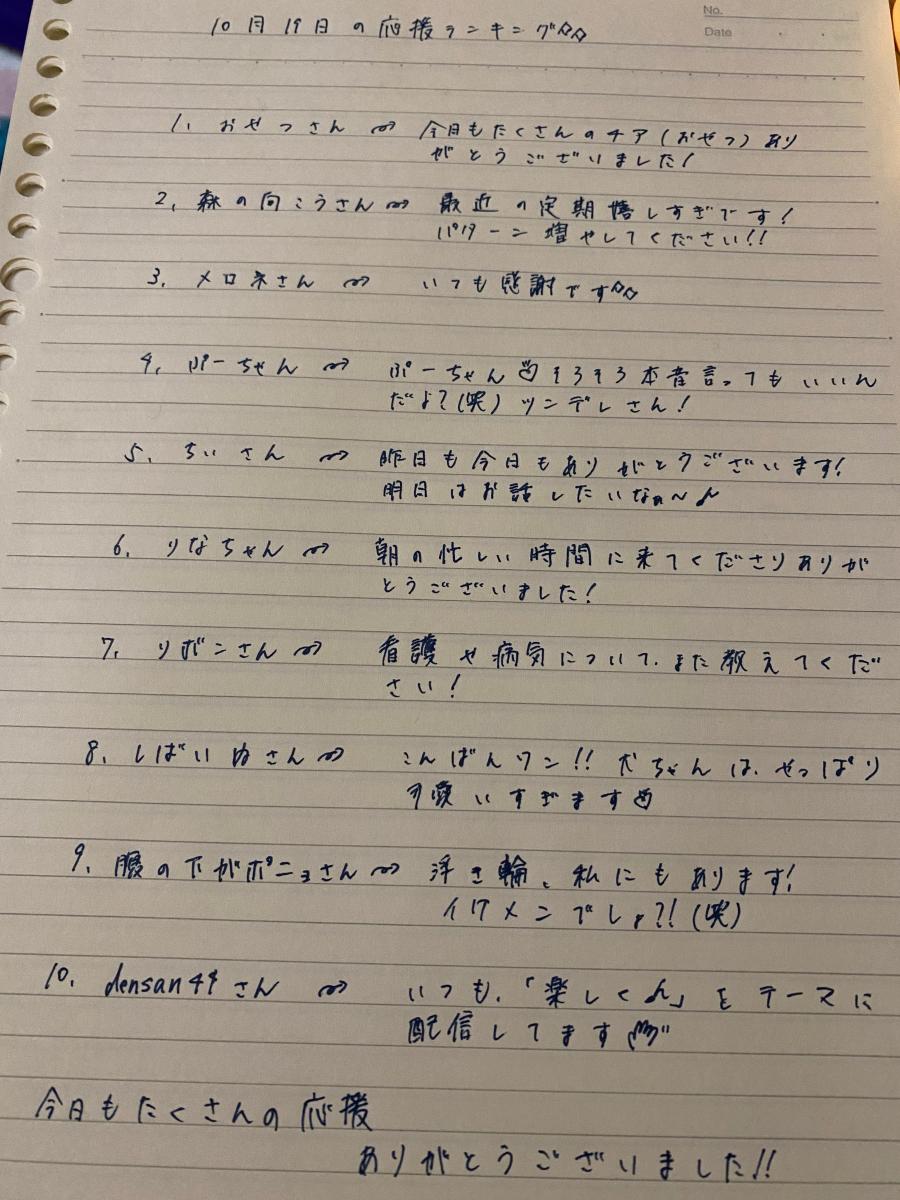 No.
Date
10月19日の応援ランキング☆☆
1. おせつさん ⇝ 今日もたくさんのチア(おせつ)あり
がとうございました!
2. 森の向こうさん ⇝ 最近の定期嬉しすぎです!
パターン増やしてください!!
3. メロネさん ⇝ いつも感謝です☆☆
4. ぷーちゃん ⇝ ぷーちゃん そろそろ本音言ってもいいん
だよ?(笑)ツンデレさん!
5. ちぃさん ⇝ 昨日も今日もありがとうございます!
明日はお話したいなぁ〜♪
6. りなちゃん ⇝ 朝の忙しい時間に来てくださりありが
とうございました!
7. リボンさん ⇝ 看護や病気について、また教えてくだ
さい!
8. しばいぬさん ⇝ こんばんワン!!犬ちゃんは、やっぱり
可愛いすぎます
9. 腹の下がポニョさん ⇝ 浮き輪、私にもあります!
イケメンでしょ?!(笑)
10. densan49さん ⇝ いつも、「楽しくん」をテーマに
配信してます
今日もたくさんの応援
ありがとうございました!!